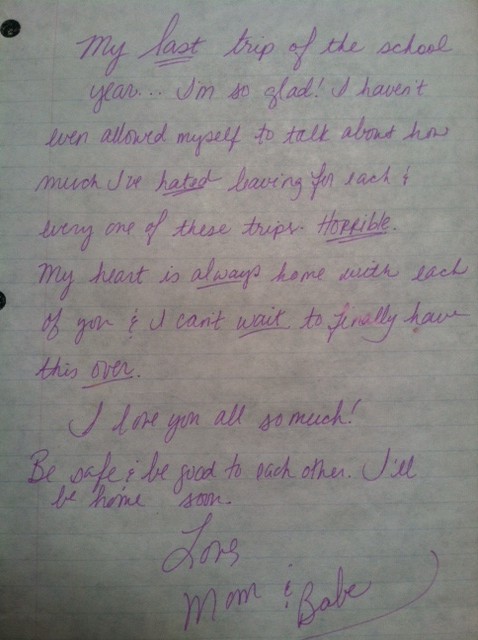 My last trip of the school
year... I'm so glad! I haven't
even allowed myself to talk about how
much I've hated leaving for each &
every one of these trips. Horrible.
My heart is always home with each
of you & I can't wait to finally have
this over.
I love you all so much!
Be safe & be good to each other. I'll
be home soon.
Love
Mom &
Babe